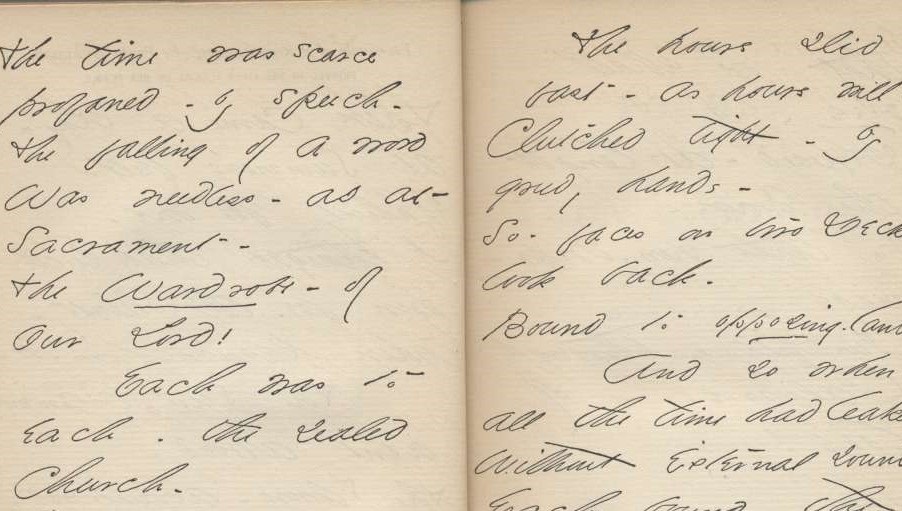 The time was scarce
profaned - by speech -
The falling of a word
Was needless - as at -
Sacrament - -
The Wardrobe - of
Our Lord!
Each was to
Each . The sealed
Church -
The hours slid
fast - as hours will
Clutched tight - by
greedy hands -
So - faces on two Decks
look back -
Bound to opposing
And so when
all the time had leaked
Without External Sound
Each bound the